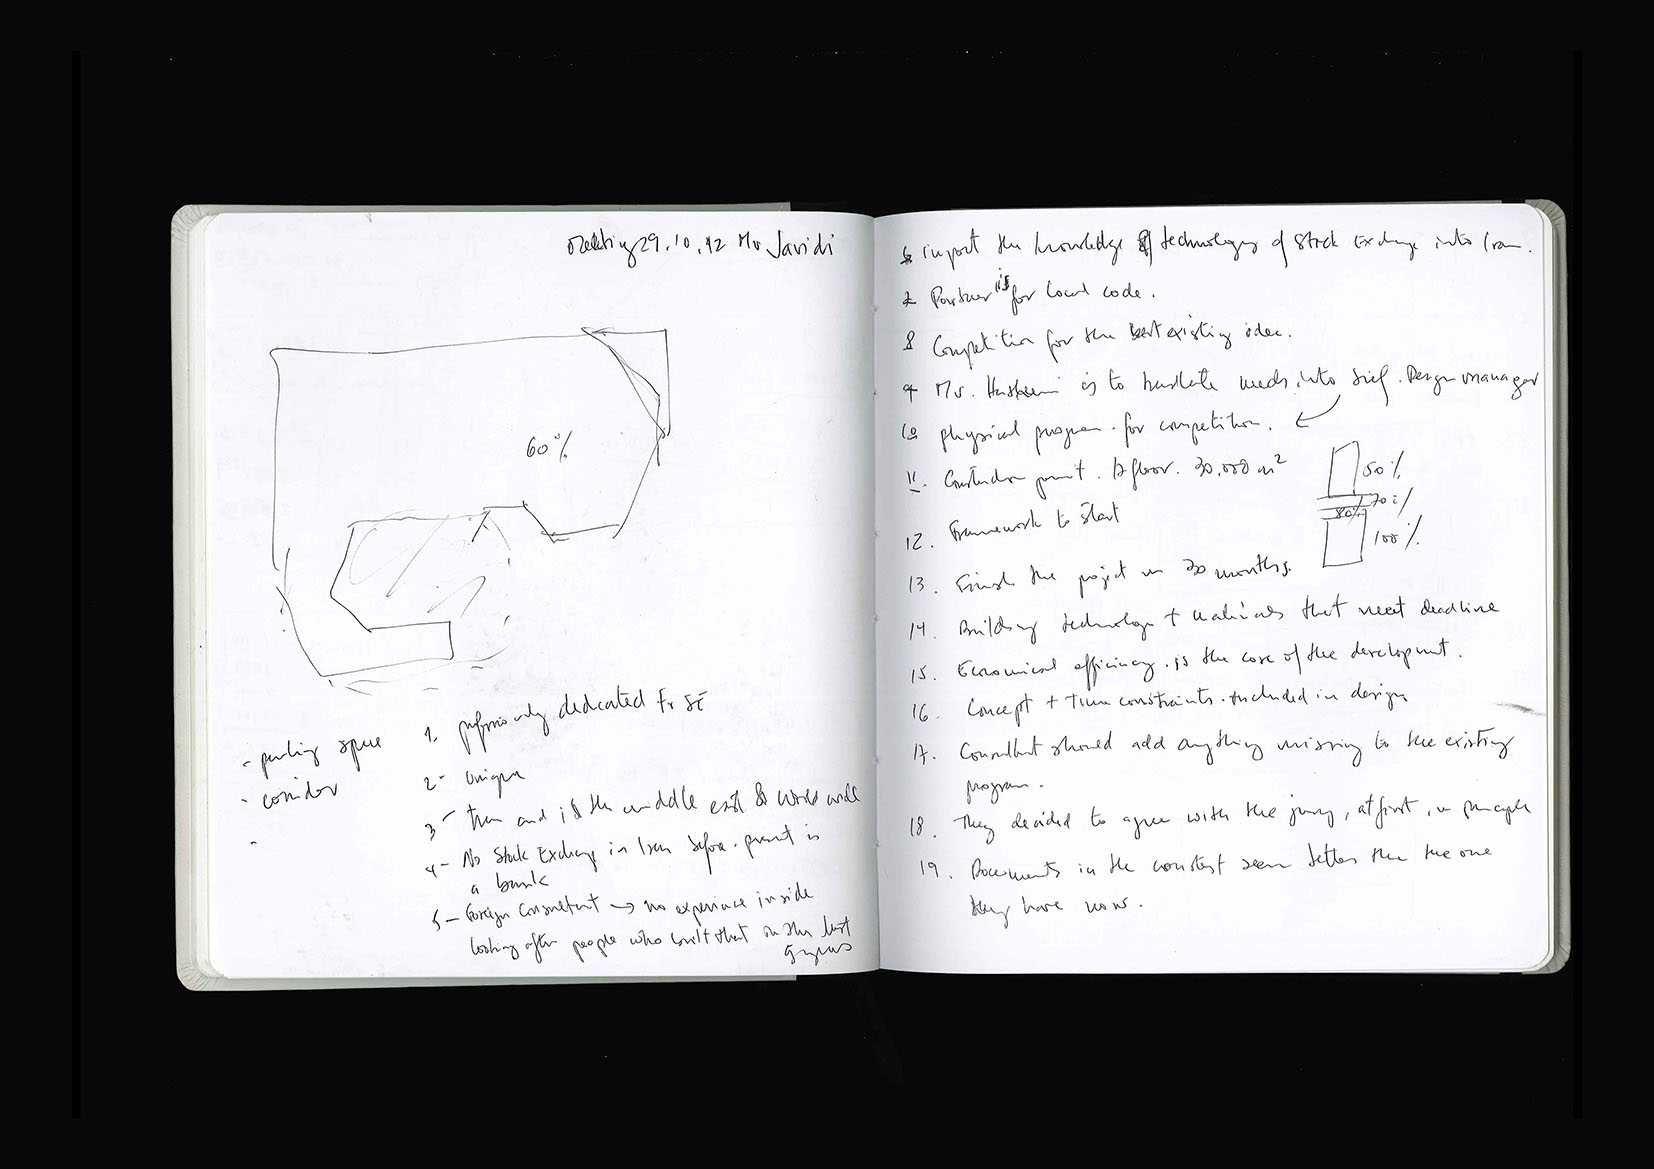 Meeting 29.10.42 Mr Javidi
60%
- parking space
- corridor
-
1. dedicated for SE
2- Unique
3- and in the middle east & world wide
4- No Stock Exchange in Iran before. present is
a bank
5- Foreign Consultant → no experience inside
looking after people who built that in the last
5 years
6 import the knowledge & technology of Stock Exchange into Iran.
7 Partner is for local code.
8 Competition for the best existing idea.
9 Mr. Hashemi is to translate needs into brief. Design manager
10 physical program. for competition.
11. Construction permit. 12 floor. 30,000 m²
50%
70%
80%
100%
12. Framework to start
13. Finish the project in 30 months.
14. Building technology + materials that meet deadline
15. Economical efficiency. is the core of the development.
16 Concept + time constraints. included in design
17. Consultant should add anything missing to the existing
program.
18. They decided to agree with the jury, at first, in principle
19. Documents in the contest seem better than the one
they have now.